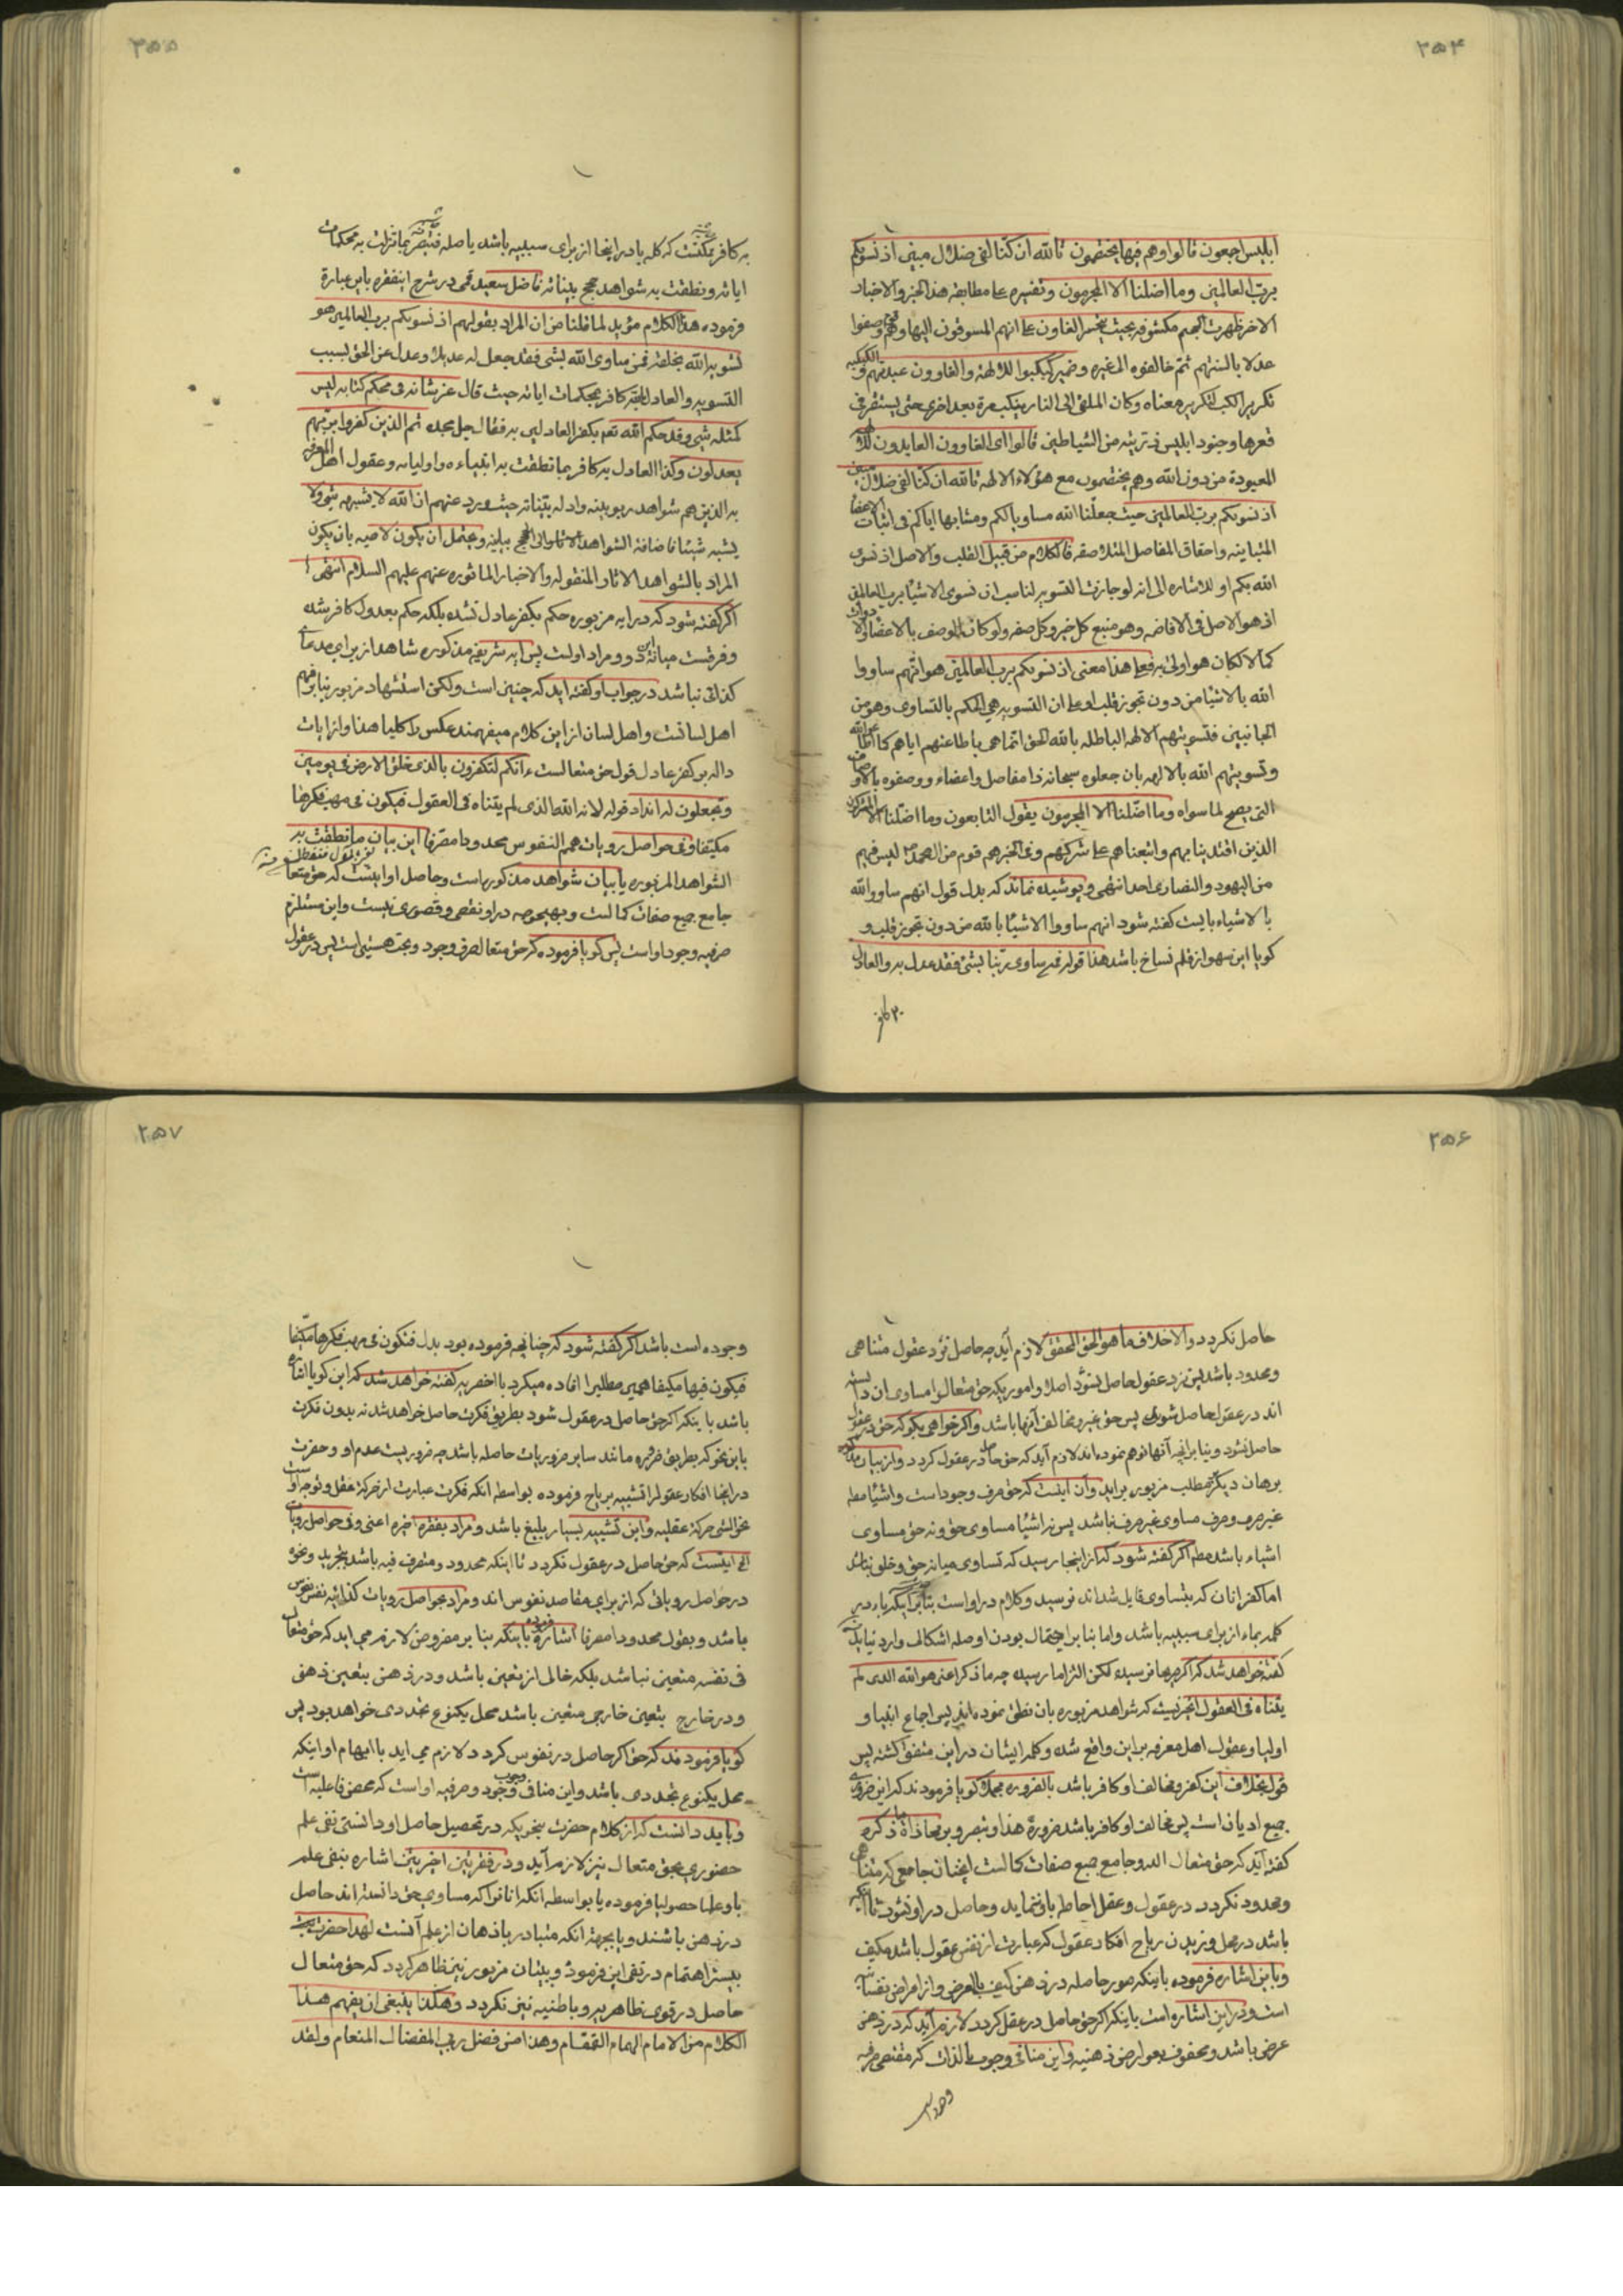 ۲۵۴
ابلیس اجمعون قالوا وهم فیها یختصمون تالله ان کنا لفی ضلال مبین اذ نسویکم
برب العالمین وما اضلنا الا المجرمون وتفسیره علی مطابقة هذا الخبر والاخبار
الاخر ظهرت الجحیم مکشوفه بحیث الغاون علی انهم المسوقون الیها وهم قوم وصفوا
عدلا بالسنتهم ثم خالفوه الی غیره وضمیر کبکبوا للالهة والغاوون عبدتهم والکبکبه
تکریر الکب لتکریر معناه وکان الملقی الی النار ینکب مرة بعد اخری حتی یستقر فی
قعرها وجنود ابلیس ذریته من الشیاطین قالوا ای الغاوون العابدون للالهه
المعبودة من دون الله وهم یختصمون مع هؤلاء الالهة تالله ان کنا لفی ضلال مبین
اذ نسویکم برب العالمین حیث جعلنا الله مساویا لکم ومشابها ایاکم فی اثبات الاعضا
المتباینه واحقاق المفاصل المتلاصقه فالکلام من قبیل القلب والاصل اذ نسوی
الله بکم او للاشاره الی انه لو جازت التسویه لناسب ان نسوی الاشیا برب العالمین
اذ هو الاصل فی الافاضه وهو منبع کل خیر وکل صفه ولو کان الوصف بالاعضا والادوات
کمالا لکان هو اولی به فعلی هذا معنی اذ نسویکم برب العالمین هو انهم ساووا
الله بالاشیا من دون تجوز قلب او علی ان التسویه هی الحکم بالتساوی وهو من
الجانبین فتسویتهم الالهة الباطله بالله الحق انما هی باطاعتهم ایاهم کاطاعة الله
وتسویتهم الله بالالهه بان جعلوه سبحانه ذا مفاصل واعضاء ووصفوه بالاوصاف
التی یصح لما سواه وما اضلنا الا المجرمون یقول التابعون وما اضلنا الا المشرکون
الذین اقتدینا بهم واتبعناهم علی شرکهم وفی الخبر هم قوم من امة محمد لیس فیهم
من الیهود والنصاری احد انتهی وپوشیده نماند که بدل قول انهم ساووا الله
بالاشیاء بایست گفته شود انهم ساووا الاشیا بالله من دون تجوز قلب و
گویا این سهو از قلم نساخ باشد هذا قوله فمن ساوی ربنا بشئ فقد عدل به والعادل
به کافر
۲۵۵
به کافر که کلمه با در اینجا از برای سببیه باشد یا صله بما تنزلت به محکمات
ایاته ونطقت به شواهد حجج بیناته فاضل سعید قمی در شرح اینفقره باین عبارة
فرموده هذا الکلام مؤید لما قلنا من ان المراد بقولهم اذ نسویکم برب العالمین هو
تسویه الله بخلقه فمن ساوی الله بشی فقد جعل له عدیلا وعدل عن الحق بسبب
التسویه والعادل البته کافر بمحکمات ایاته حیث قال عز شانه فی محکم کتابه لیس
کمثله شی وقد حکم الله تعم بکفر العادلین به فقال جل مجده ثم الذین کفروا بربهم
یعدلون وکذا العادل به کافر بما نطقت به انبیاءه واولیائه وعقول اهل المعرفه
به الذین هم شواهد ربوبیته وادلة بیناته حیث ورد عنهم ان الله لا یشبهه شی ولا
یشبه شیئا فاضافة الشواهد الی الحجج بیانیه ویحتمل ان یکون لامیه بان یکون
المراد بالشواهد الاثار المنقوله والاخبار الماثوره عنهم علیهم السلام انتهی
اگر گفته شود که در ایه مزبوره حکم بکفر عادل نشده بلکه حکم بعدول کافر شده
وفرقست میانه این دو ومراد اولست پس ایه شریفه مذکوره شاهد از برای مدعا
کذائی نباشد در جواب او گفته اید که چنین است ولکن استشهاد مزبور بنا بر فهم
اهل لسانست واهل لسان از این کلام میفهمند عکس را کلیا هذا واز ایات
داله بر کفر عادل قول حق متعالست ءانکم لتکفرون بالذی خلق الارض فی یومین
وتجعلون له انداد قوله لانه الله الذی لم یتناه فی العقول فیکون فی مهب فکرها
مکیفا وفی حواصل رویات همم النفوس محدودا مصرفا این بیان ما نطقت به
الشواهد المزبوره یا بیان شواهد مذکوره است وحاصل او اینست که حق متعال
جامع جمیع صفات کمالست وبهیچوجه در او نقص وقصوری نیست واین مستلزم
صرفیه وجود او است پس گویا فرموده که حق متعال صرف وجود وبحت هستی است پس در عقول
۲۵۶
حاصل نگردد والا خلاف ما هو الحق المحقق لازم آید چه حاصل نزد عقول متناهی
ومحدود باشد پس نزد عقول حاصل نشود اصلا وامور یکه حق متعال را مساوی ان دانسته
اند در عقول حاصل شود پس حق غیر ومخالف آنها باشد واگر خواهی بگو که حق در عقول
حاصل نشود وبنا برانچه آنها توهم نموده اند لازم آید که حق حاصل در عقول گردد واز بیان مذکوره
برهان دیگر بمطلب مزبور براید وآن اینست که حق صرف وجود است واشیا مطلقا
غیر صرف وصرف مساوی غیر صرف نباشد پس نه اشیا مساوی حق ونه حق مساوی
اشیاء باشد مطلقا اگر گفته شود که از اینجا رسید که تساوی میانه حق وخلق نباشد
اما کفر انان که بتساوی قایل شده اند نرسید وکلام در او است بنا بر اینکه باء در
کلمه بماء از برای سببیه باشد واما بنا بر احتمال بودن او صله اشکالی وارد نیاید
گفته خواهد شد که اگر صریحا نرسید لکن التزاما رسید چه ما ذکر اعنی هو الله الذی لم
یتناه فی العقول انچیزیست که شواهد مزبوره بان نطق نموده اند پس اجماع انبیا و
اولیا وعقول اهل معرفه بر این واقع شده وکلمه ایشان در این متفق گشته پس
قول بخلاف این کفر ومخالف او کافر باشد بالضروره مجملا گویا فرمودند که این ضروری
جمیع ادیان است پس مخالف او کافر باشد ضرورة هذا وتبصر وبمحاذاة ما ذکره
گفته آید که حق متعال اله وجامع جمیع صفات کمالست انچنان جامعی که متناهی
ومحدود نگردد در عقول وعقل احاطه باو ننماید وحاصل در او نشود تا آنکه
باشد در محل وزیدن ریاح افکار عقول که عبارت از نفس عقول باشد مکیف
وباین اشاره فرموده باینکه صور حاصله در ذهن کیف بالعرض واز اعراض نفسانیه
است ودر این اشاره است باینکه اگر حق حاصل در عقل گردد لازم آید که در ذهن
عرض باشد ومحفوف بعوارض ذهنیه واین منافی وجوب بالذات که مقتضی صرفیه
وجود است
۲۵۷
وجوده است باشد اگر گفته شود که چنانچه فرموده بود بدل فتکون فی مهب فکرها مکیفا
فیکون فیها مکیفا همین مطلبرا افاده میکرد با اخصریه گفته خواهد شد که این گویا اشاره
باشد باینکه اگر حق حاصل در عقول شود بطریق فکرت حاصل خواهد شد نه بدون فکرت
باین نحو که بطریق ضروره مانند سایر ضروریات حاصله باشد چه ضروریست عدم او وحضرت
در اینجا افکار عقول را تشبیه بریاح فرموده بواسطه انکه فکرت عبارت از حرکة عقل وتوجه او است
نحو الشی حرکة عقلیه واین تشبیه بسیار بلیغ باشد ومراد بفقره اخیره اعنی وفی حواصل رویات
الخ اینست که حق حاصل در عقول نگردد تا اینکه محدود ومتصرف فیه باشد بتجرید ونحوه
در حواصل رویاتی که از برای مقاصد نفوس اند ومراد بحواصل رویات کذائیه نفس نفوس
باشد وبقول محدودا مصرفا اشارة فرموده باینکه بنا بر مفروض لازم می اید که حق متعال
فی نفسه متعین نباشد بلکه خالی از تعین باشد ودر ذهن بتعین ذهنی
ودر خارج بتعین خارجی متعین باشد محل یکنوع تجددی خواهد بود پس
گویا فرمودند که حق اگر حاصل در نفوس گردد لازم می اید با ابهام او اینکه
محل یکنوع تجددی باشد واین منافی وجوب وجود وصرفیه او است که محض فاعلیه است
وباید دانست که از کلام حضرت بنحویکه در تحصیل حاصل او دانستی نفی علم
حضوری بحق متعال نیز لازم آید ودر فقرتین اخیرتین اشاره بنفی علم
باو علما حصولیا فرموده یا بواسطه انکه انانرا که مساوی حق دانسته اند حاصل
در ذهن باشند ویا بجهة انکه متبادر باذهان از علم آنست لهذا حضرت
بیشتر اهتمام در نفی این فرمود وببیان مزبور نیز ظاهر گردد که حق متعال
حاصل در قوی ظاهریه وباطنیه نیز نگردد وهکذا ینبغی ان یفهم هذا
الکلام من الامام الهمام القمقام وهذا من فضل ربی المفضال المنعام ولقد